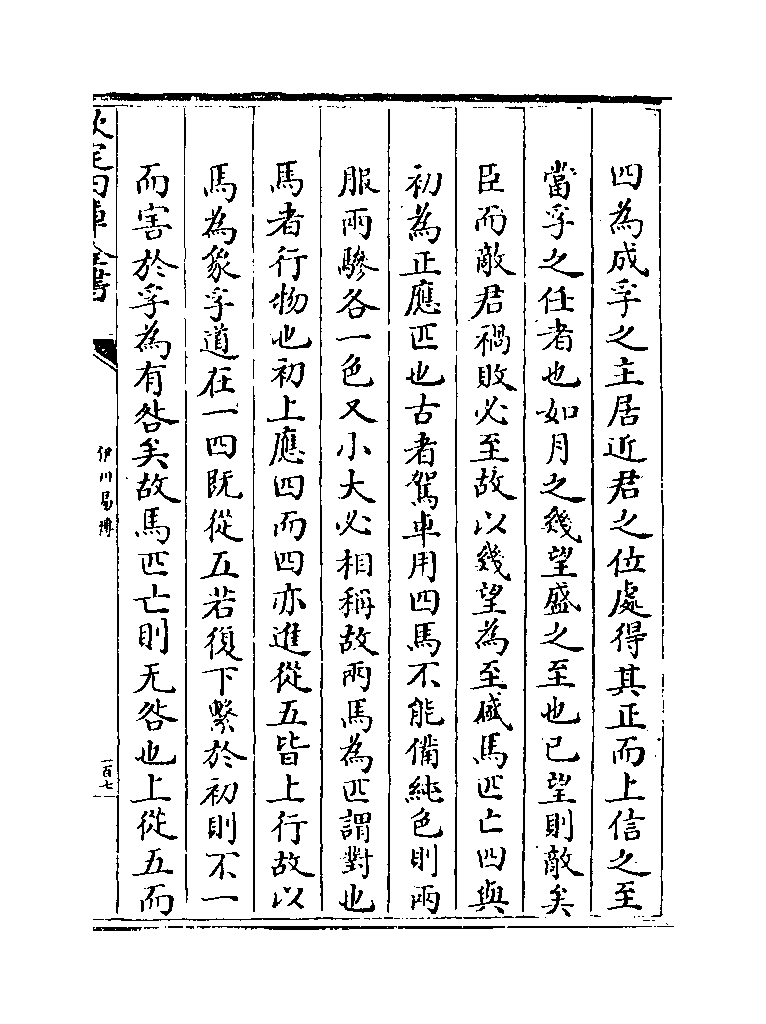 四為成孚之主居近君之位處得其正而上信之至
當孚之任者也如月之幾望盛之至也已望則敵矣
臣而敵君禍敗必至故以幾望為至盛馬匹亡四與
初為正應匹也古者駕車用四馬不能備純色則兩
服兩驂各一色又小大必相稱故兩馬為匹謂對也
馬者行物也初上應四而四亦進從五皆上行故以
馬為象孚道在一四既從五若復下繫於初則不一
而害於孚為有咎矣故馬匹亡則无咎也上從五而
欽定四庫全書
伊川易傳
一百七